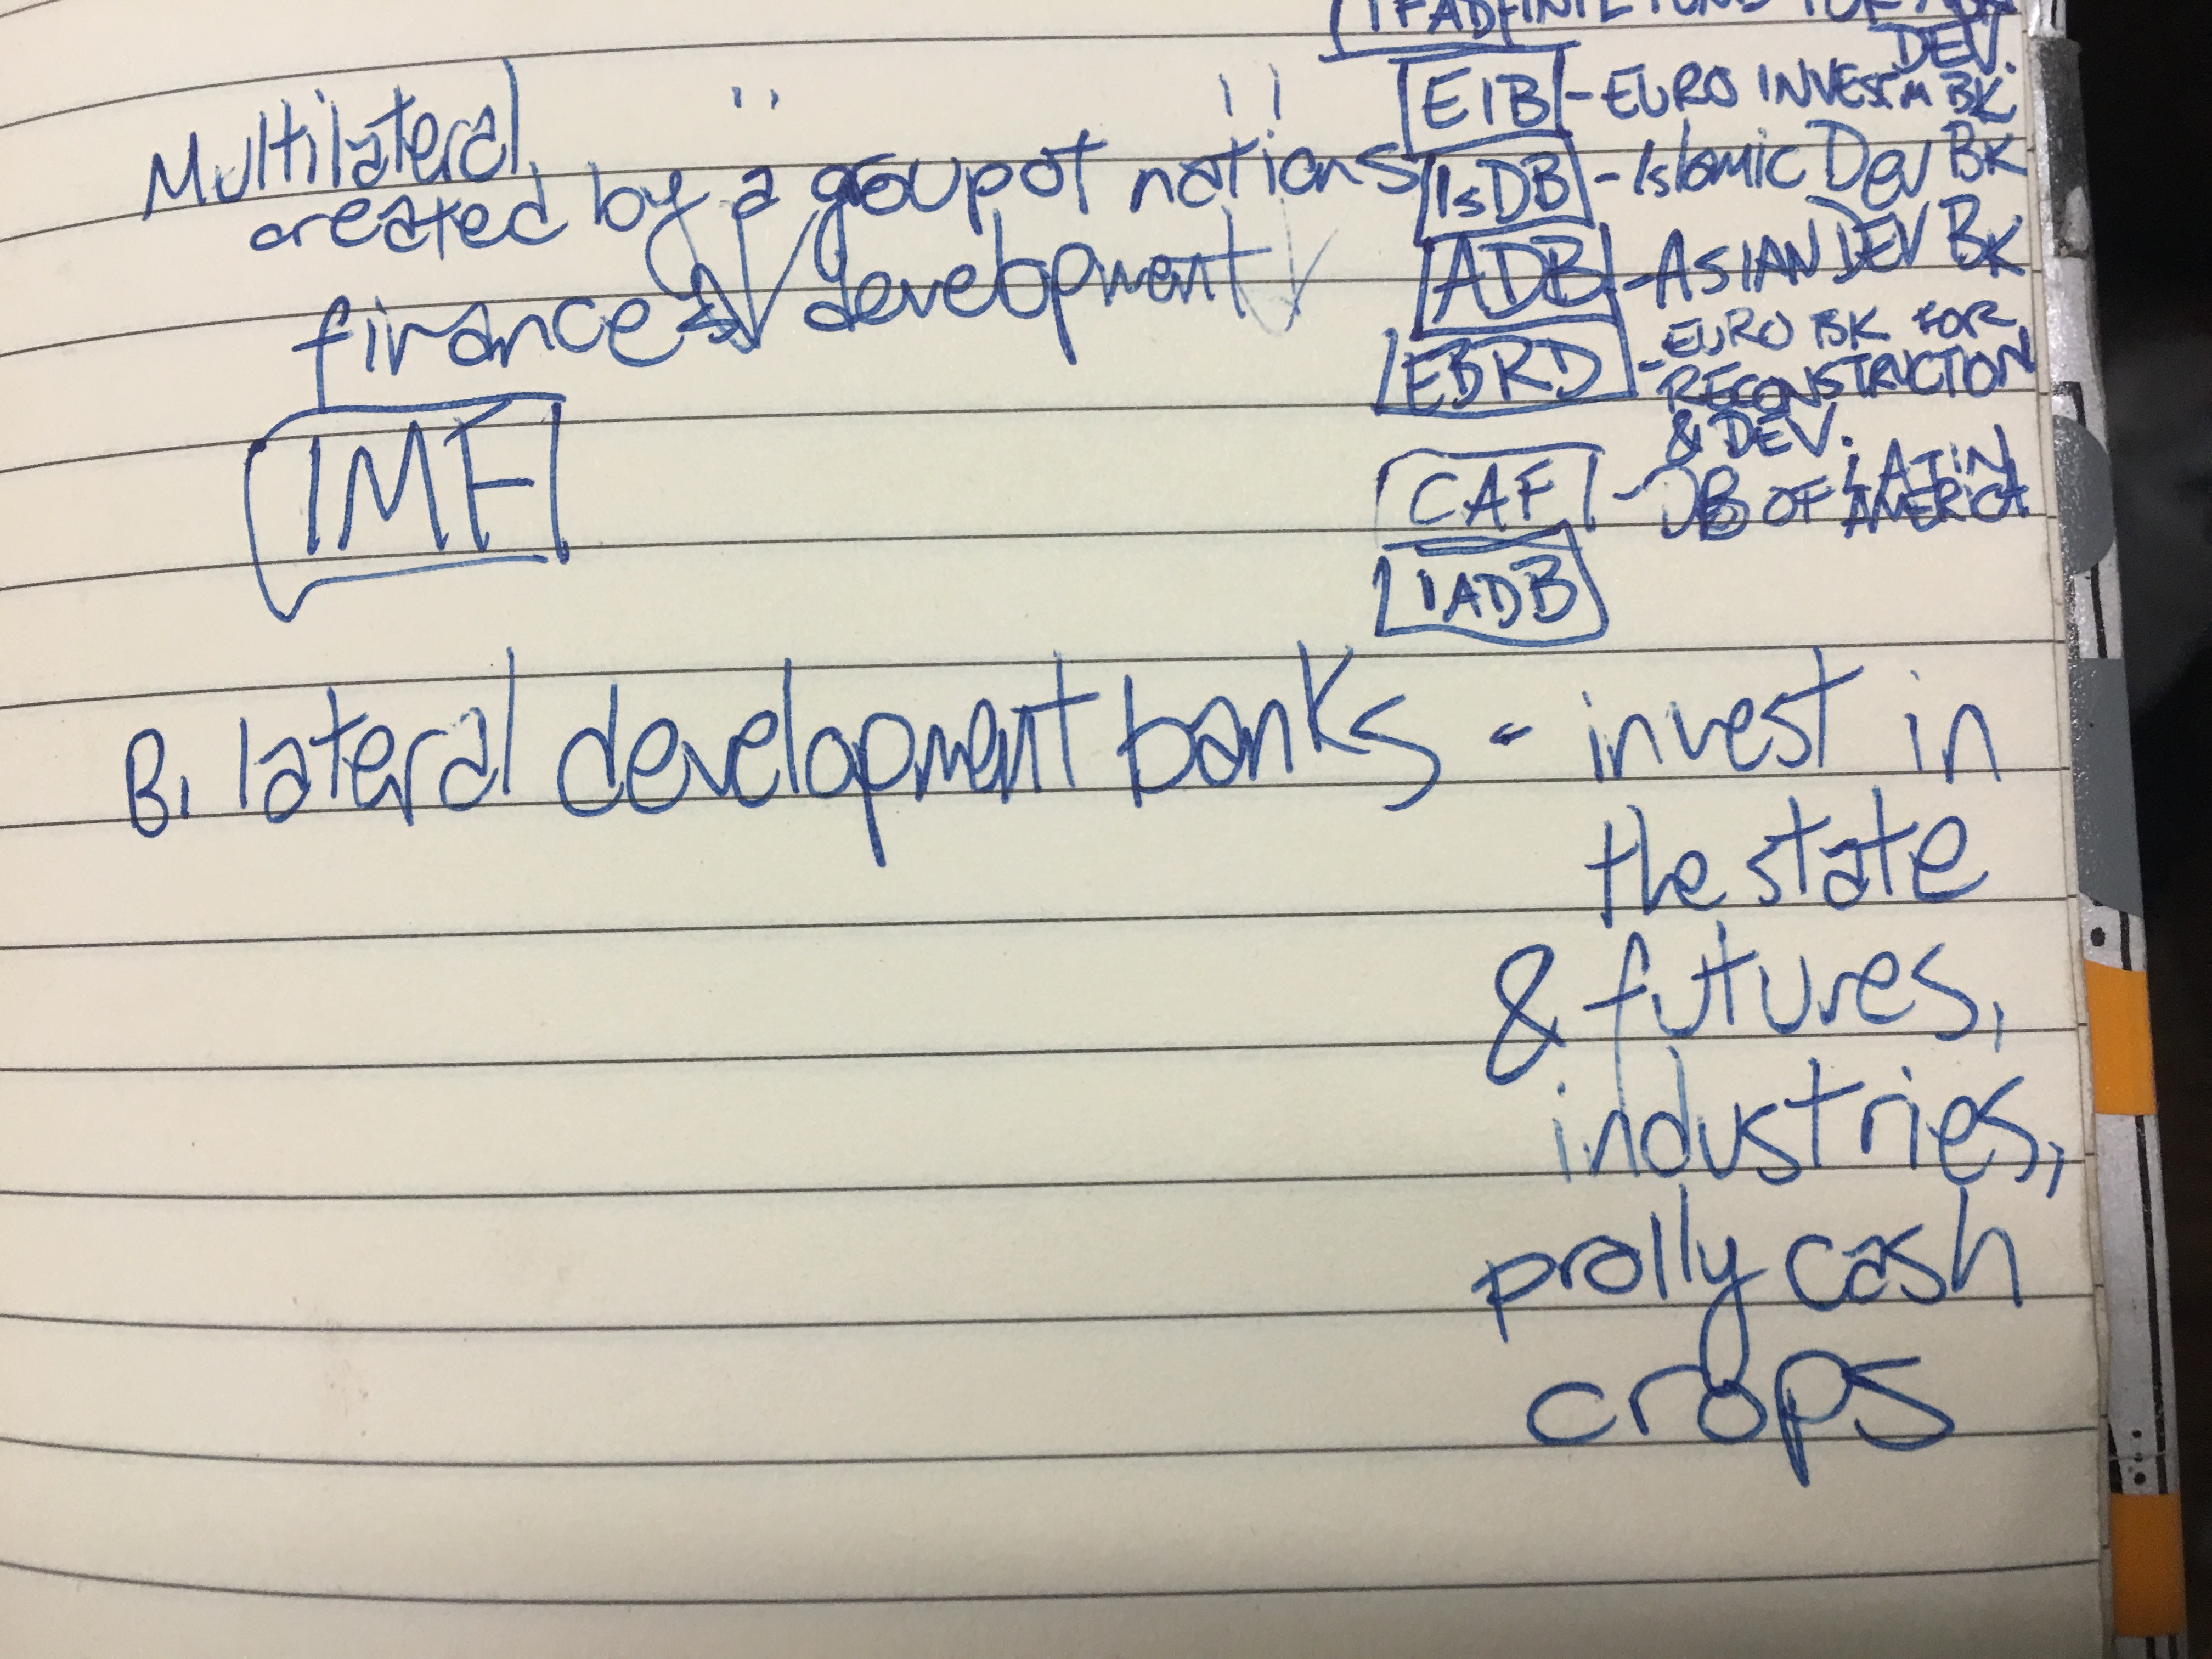 IFAD - INTL FUND FOR
DEV.
Multilateral " "
created by a group of nations
finance development
IMF
EIB - EURO INVESTM BK
IsDB - Islamic Dev BK
ADB - ASIAN DEV BK
EBRD - EURO BK FOR
RECONSTRUCTION
& DEV.
CAF - DB OF LATIN
AMERICA
IADB
Bilateral development banks - invest in
the state
& futures,
industries,
prolly cash
crops